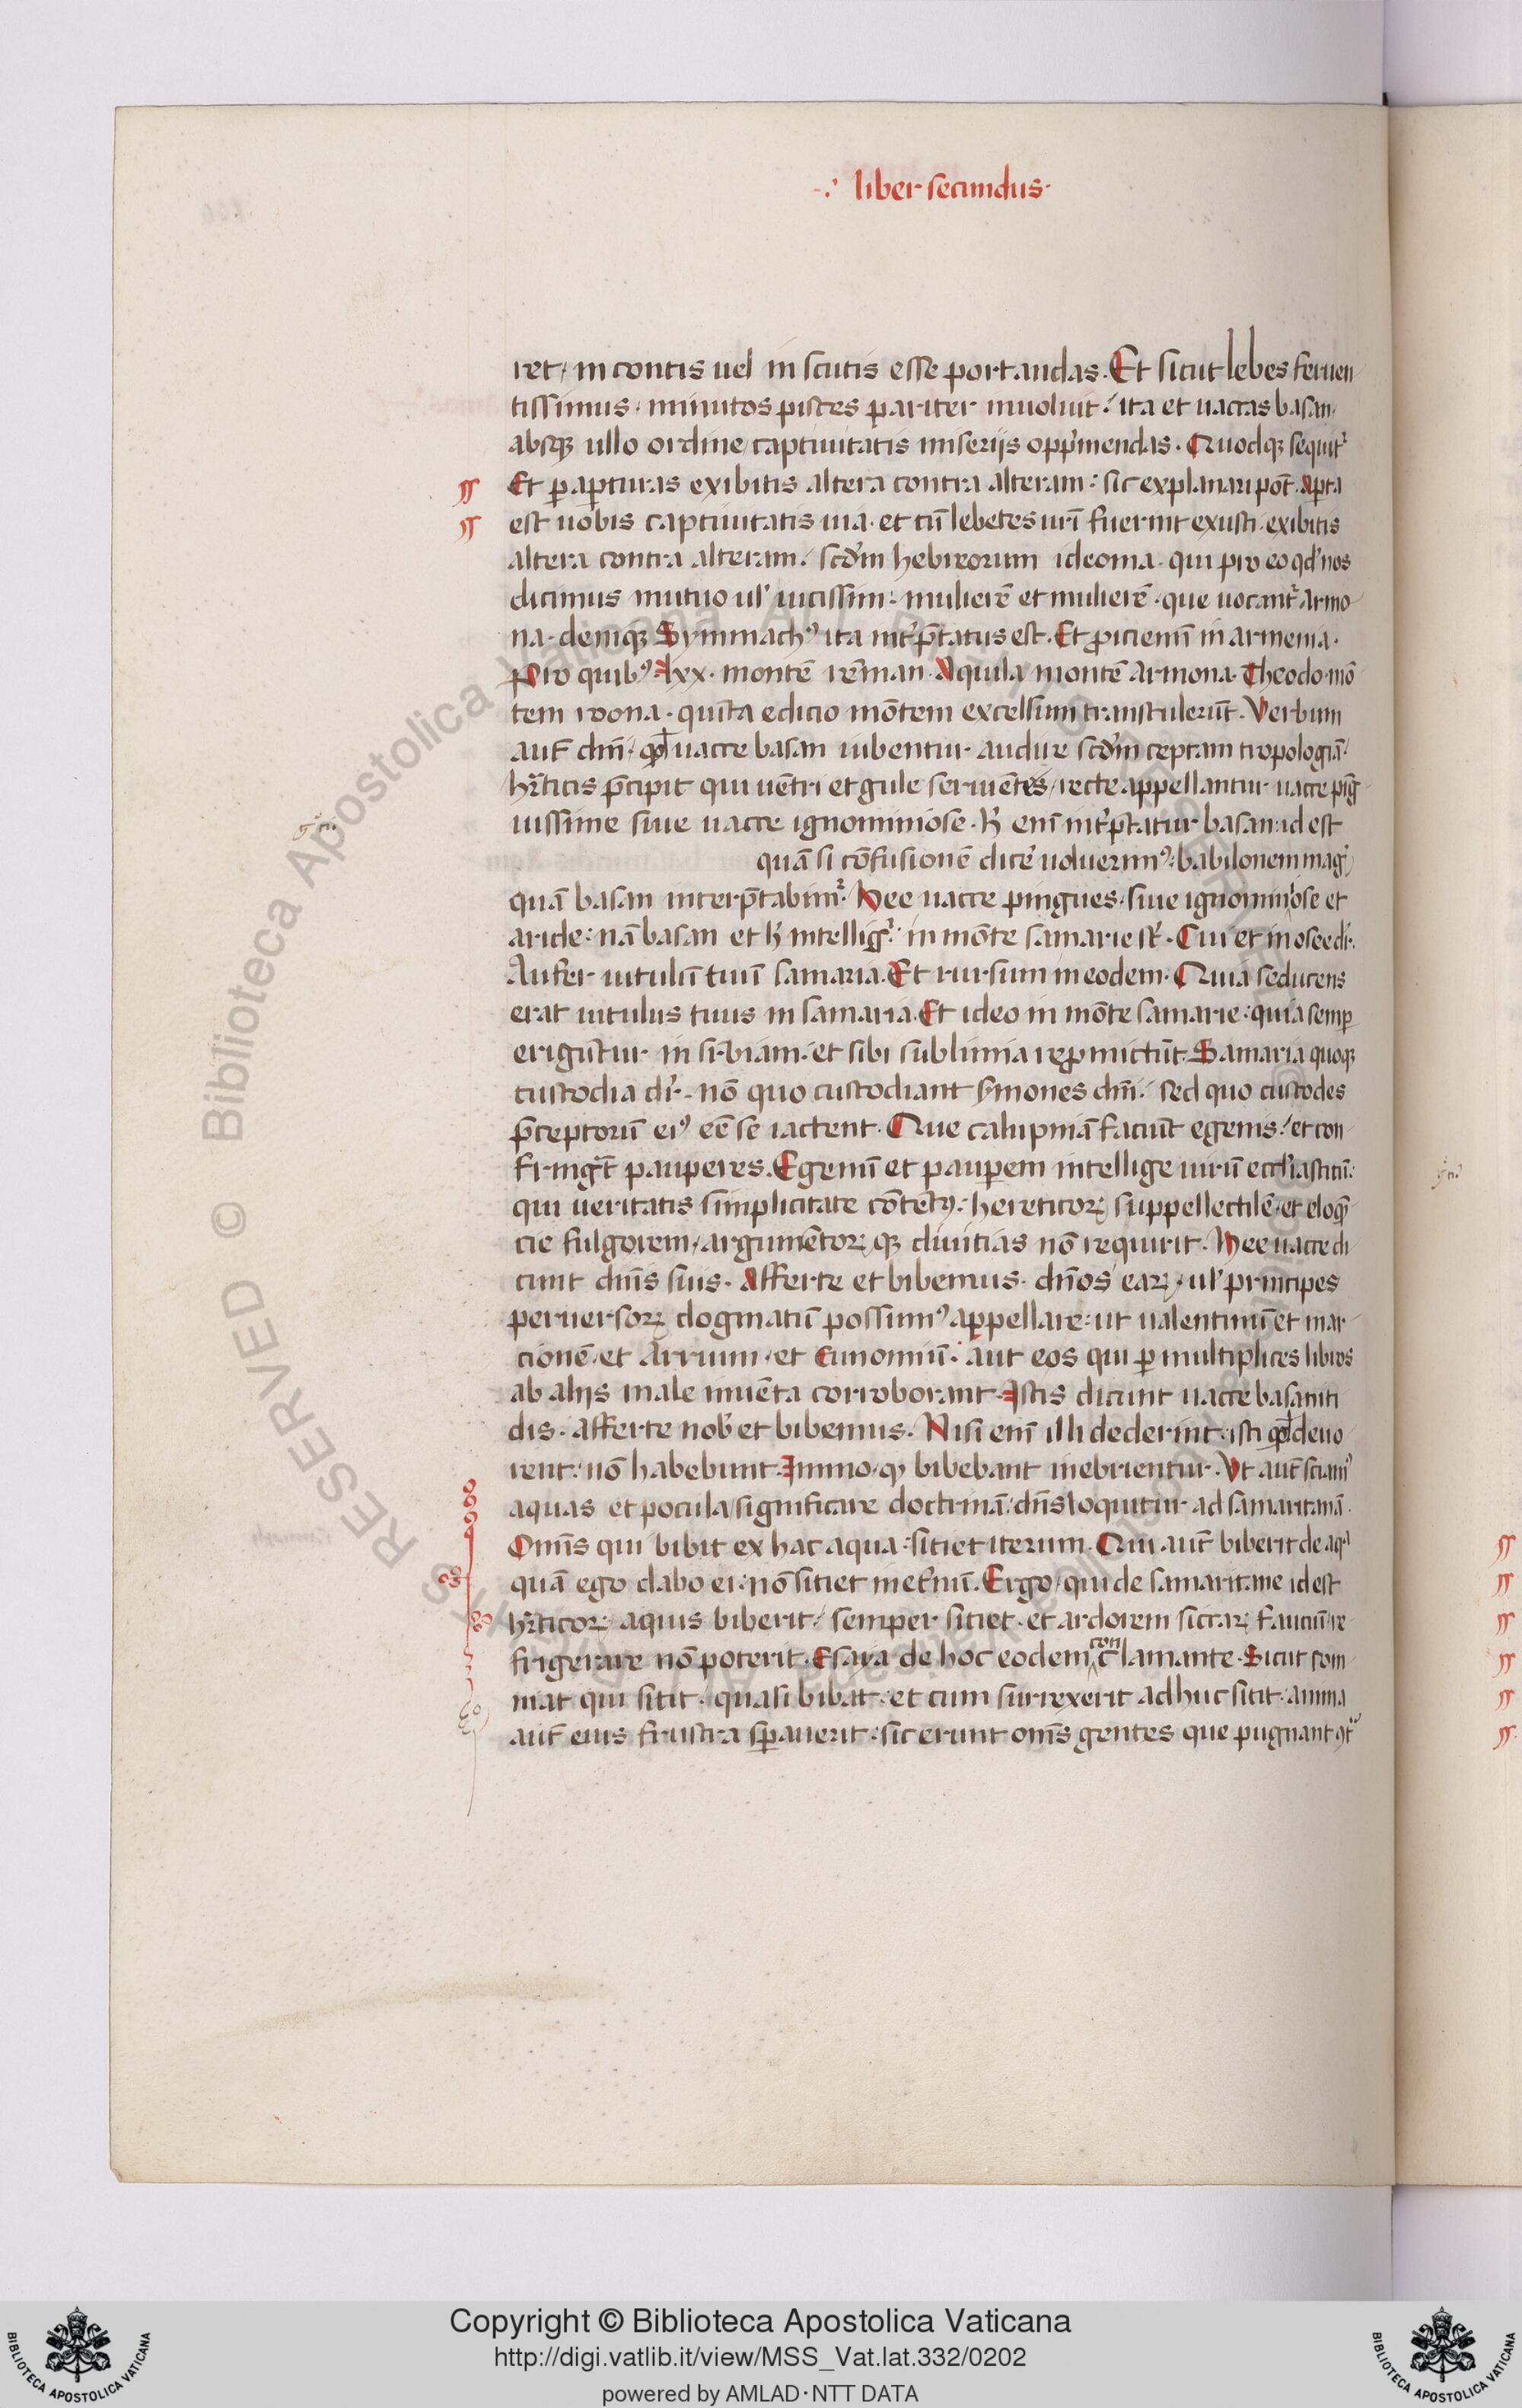 liber secundus
ret, in contis uel in scutis esse portandas. Et sicut lebes feruen
tissimus, minutos pisces pariter inuoluit: ita et uaccas basan,
absqꝫ ullo ordine captiuitatis miserijs opp̄mendas. Quodqꝫ sequit᷑
Et ꝑ aꝑturas exibitis altera contra alteram: sic explanari pōt. Aꝑta
est uobis captiuitatis uia. et cū lebetes ur̄i fuerint exusti. exibitis
altera contra alteram, scd̄m hebreorum ideoma. qui pro eo qd̓ nos
dicimus mutuo ul̓ uicissim: mulierē et mulierē. que uocant᷑ Armo
na. deniqꝫ Symmachꝰ ita int̓p̄tatus est. Et ꝓiciemī in armenia.
Pro quibꝰ lxx. montē rēman. Aquila montē Armona. Theodo. mō
tem roona. quīta edicio mōtem excelsum transtulerūt. Verbum
aut̄ dn̄i, qd̓ uacce basan iubentur audire scd̄m ceptam tropologiā.
hr̄ticis p̄cipit qui uētri et gule seruiētes, recte appellantur uacce pīg
uissime siue uacce ignominiose. H̓ enī int̓p̄tatur basan: id est
quā si cōfusionē dicē uoluerimꝰ: babilonem mag̓
quā basan interp̄tabim᷑. Hee uacce pingues, siue ignominiose et
aride: nā basan et h̓ intellig᷑: in mōte samarie st̄. Cui et in osee dr̄.
Aufer uitulū tuū samaria. Et rursum in eodem. Quia seducens
erat uitulus tuus in samaria. Et ideo in mōte samarie: quia semꝑ
erigūtur in suꝑbiam. et sibi sublimia repmictūt. Samaria quoqꝫ
custodia dr̄. nō quo custodiant sr̄mones dn̄i, sed quo custodes
p̄ceptorū eiꝰ eē se iactent. Que calupniā faciūt egenis: et con
fringūt pauperes. Egenū et pauꝑem intellige uirū eccl̓iasticū:
qui ueritatis simplicitate cōtētꝰ: hereticoꝝ suppellectilē, et eloquē
cie fulgorem, argumētoꝝqꝫ diuitias nō requirit. Hee uacce di
cunt dn̄is suis. Afferte et bibemus. dn̄os eaꝝ. ul̓ principes
peruersoꝝ dogmatū possumꝰ appellare: ut ualentinū et mar
cionē, et Arrium, et Eunomiū. aut eos qui ꝑ multiplices libros
ab alijs male inuēta corroborant. Istis dicunt uacce basaniti
dis. afferte nob̓ et bibemus. Nisi enī illi dederint. isti qd̓ deuo
rent: nō habebunt. Immo qꝫ bibebant inebrientur. Vt aut̄ sciamꝰ
aquas et pocula significare doctrinā, dn̄s loquitur ad samaritanā.
Omīs qui bibit ex hac aqua: sitiet iterum. Qui aut̄ biberit de aqᵃ
quā ego dabo ei: nō sitiet inet̓nū. Ergo, qui de samaritane id est
hr̄ticoꝝ aquis biberit, semper sitiet. et ardorem siccaꝝ fauciū re
frigerare nō poterit. Esaya de hoc eodem conclamante. Sicut som
niat qui sitit, quasi bibat. et cum surrexerit adhuc sitit: anima
aut̄ eius frustra sꝑauerit: sic erunt omīs gentes que pugnant ꝯt̓
Copyright © Biblioteca Apostolica Vaticana
http://digi.vatlib.it/view/MSS_Vat.lat.332/0202
powered by AMLAD·NTT DATA